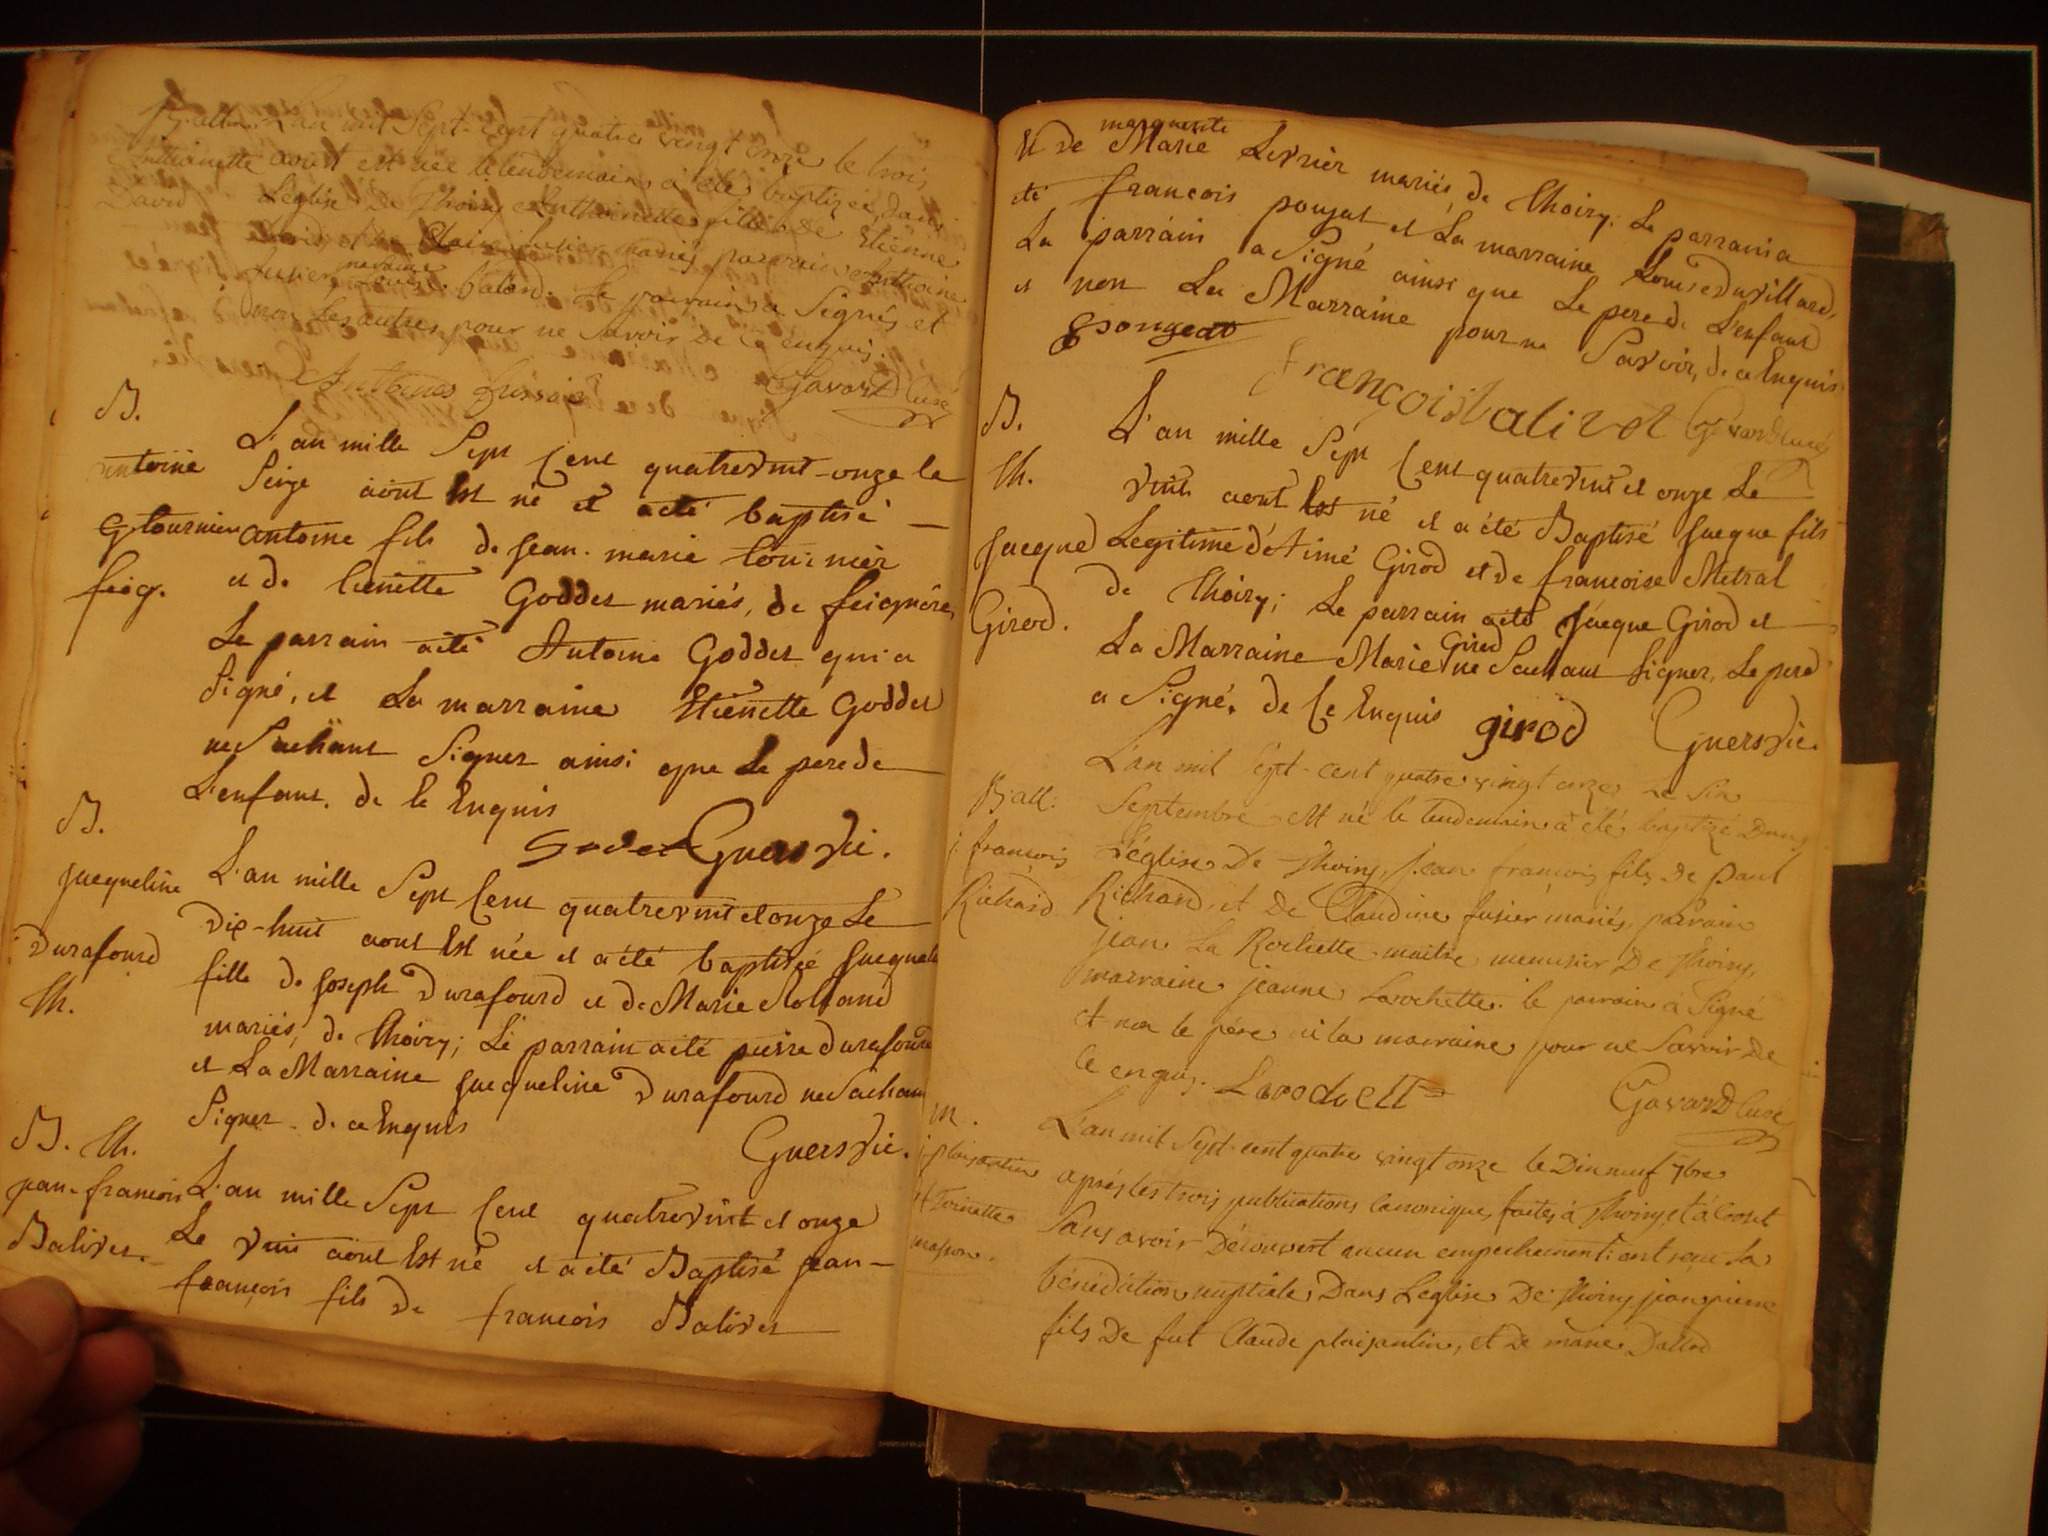 L'an mil Sept-cent quatre vingt onze le trois
Anthoinette aoust est née le lendemain a été baptizée dans
David L'église De Thoiry Anthoinette fille de Etienne
David et de Claire fusier mariés parrain Anthoine
fusier marraine Louise baland. le parrain a Signés et
non les autres pour ne Savoir de ce enquis.
Gavard Curé
B.
L'an mille Sept Cent quatrevint-onze le
antoine Seize aout Est né et a eté baptisé —
tournier antoine fils de jean-marie tournier
feig. et de Goddet mariés, de feignére,
Le parrain a eté Antoine Goddet qui a
Signé, et La marraine Etienette Goddet
ne Sachant Signer ainsi que Le pere de
L'enfant. de Ce Enquis
Godet Guerdvie.
B.
jacqueline L'an mille Sept Cent quatrevint et onze Le
Durafourd dix-huit aout Est née et a été baptisée
Th. fille de joseph Durafourd et de Marie Rolland
mariés, de Thoiry; Le parrain a eté pierre durafourd
et La Marraine jacqueline Durafourd ne Sachant
Signer. de ce Enquis
B. Th.
jean-francois L'an mille Sept Cent quatrevint et onze
Balivet. Le vint aout Est né et a eté Baptisé jean-
françois fils de francois Balivet
Et de marguerite Marie Levrier mariés, de Thoiry; Le parrain a
eté francois poujat et La marraine Louise Duvillard,
Le parrain a Signé ainsi que Le pere de L'enfant
et non La Marraine pour ne Savoir, de ce Enquis.
françois balivet Gavard curé
B.
L'an mille Sept Cent quatrevint et onze Le
Th. vint aout Est né et a été Baptisé jacque fils
jacque Legitime d'Aimé Girod et de francoise Metral
Girod. de Thoiry; Le parrain a eté jacque Girod et
La Marraine Marie Girod ne Sachant Signer, Le pere
a Signé. de Ce Enquis girod
L'an mil Sept-cent quatre vingt onze Le Six
Septembre est né le lendemain a été baptizé Dans
j. françois L'église De Thoiry, jean françois fils De paul
Richard Richard, et De Claudine fusier mariés, parrain
jean La Rochette maitre menusier De Thoiry,
marraine jeanne Larochette. le parrain a Signé
et non le pére ni la marraine pour ne Savoir De
Ce enquis. Larochette Gavard Curé
M.
L'an mil Sept-cent quatre vingt onze le Dix neuf 7bre
plaisantin après les trois publications canoniques faites à Thoiry et à Crozet
Sans avoir Découvert aucun empechement; ont reçu la
masson. bénédiction nuptiale, Dans L'eglise De Thoiry jean pierre
fils De fut Claude plaisantin, et De marie